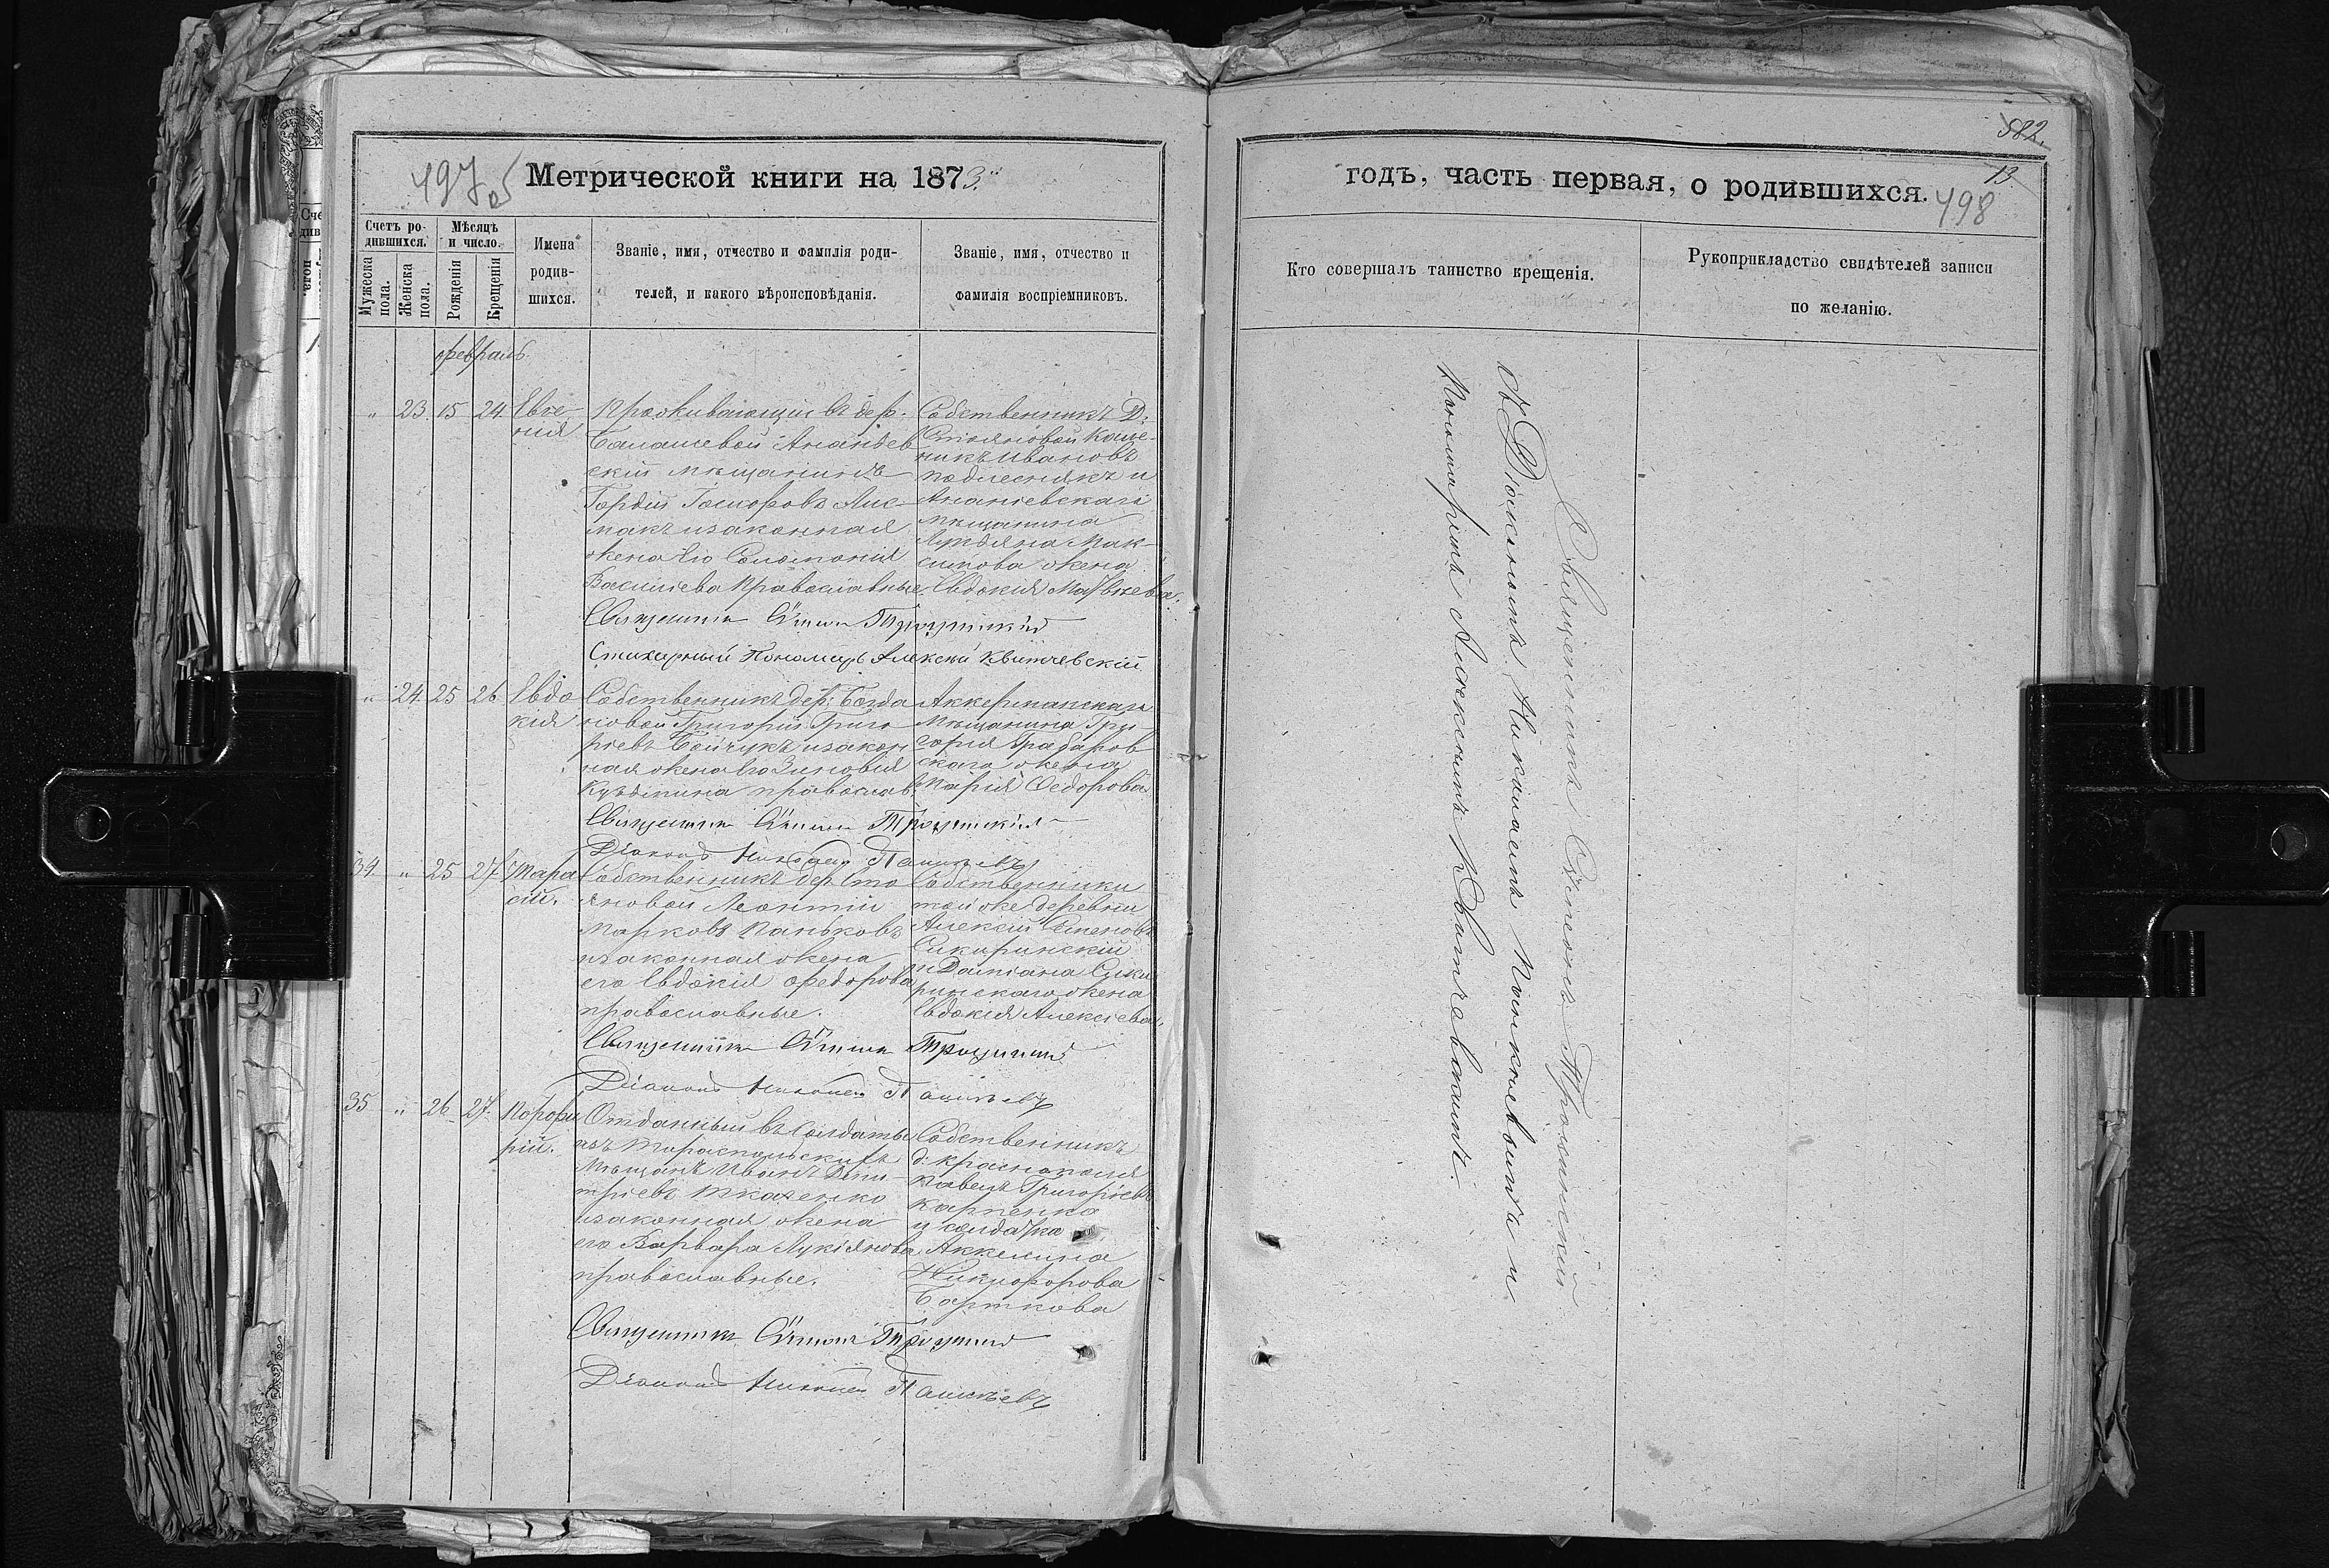 497 об
Метрической книги на 1873.
Счетъ родившихся.
Мѣсяцъ и число.
Мужеска пола.
Женска пола.
Рожденія
Крещенія
Имена родившихся.
Званіе, имя, отчество и фамилія родителей, и какого вѣроисповѣданія.
Званіе, имя, отчество и фамилія воспріемниковъ.
февраль
" 23 15 24 Евге-
нія
Проживающій въ дер.
Балашевой Ананьев
скій мѣщанинъ
Гордій
макъ и законная
жена его Соломонія
Васильева православные
Собственникъ Д.
Стояновой
Ивановъ
и
Ананіевскаго
мѣщанина
Лукіяна Мак-
симова жена
Евдокія Матвѣева.
Священникъ Симеонъ Троицкій
Стихарный Пономарь Алексій Квитчевскій
" 24 25 26 Евдо
кія
Собственникъ дер. Богда
новой Григорій Григо
ріевъ Бойчукъ и закон
ная жена его Зиновія
Кузьмина православ.
Аккерманскаго
мѣщанина Гри
горія Грабаров
скаго жена
Марія Ѳедорова
Священникъ Симеонъ Троицкій
Діаконъ Николай
34 " 25 27 Тара
сій.
Собственникъ дер. Сто
яновой Леонтій
Марковъ Паньковъ
и законная жена
его Евдокія Федорова
православные.
Собственники
той же деревни
Алексій Семеновъ
Сикиринскій
и Даміана Сики
ринскаго жена
Евдокія Алексіева.
Священникъ Симеонъ Троицкій
Діаконъ Николай
35 " 26 27 Порфи
рій.
Отданный въ Солдаты
изъ Тираспольскихъ
Мѣщанъ Иванъ Дми-
тріевъ Ткаченко
и законная жена
его Варвара Лукіянова
православные.
Собственникъ
д. Краснополя
Павелъ Григоріевъ
Карпенко
и солдатка
Аккилина
Никифорова
Борткова
Священникъ Симеонъ Троицкій
Діаконъ Николай
582
13.
498
годъ, часть первая, о родившихся.
Кто совершалъ таинство крещенія.
Рукоприкладство свидѣтелей записи
по желанію.
Священникъ Симеонъ Троицкій
съ Діакономъ Николаемъ и
Пономаремъ Алексіемъ Квитчевскимъ.